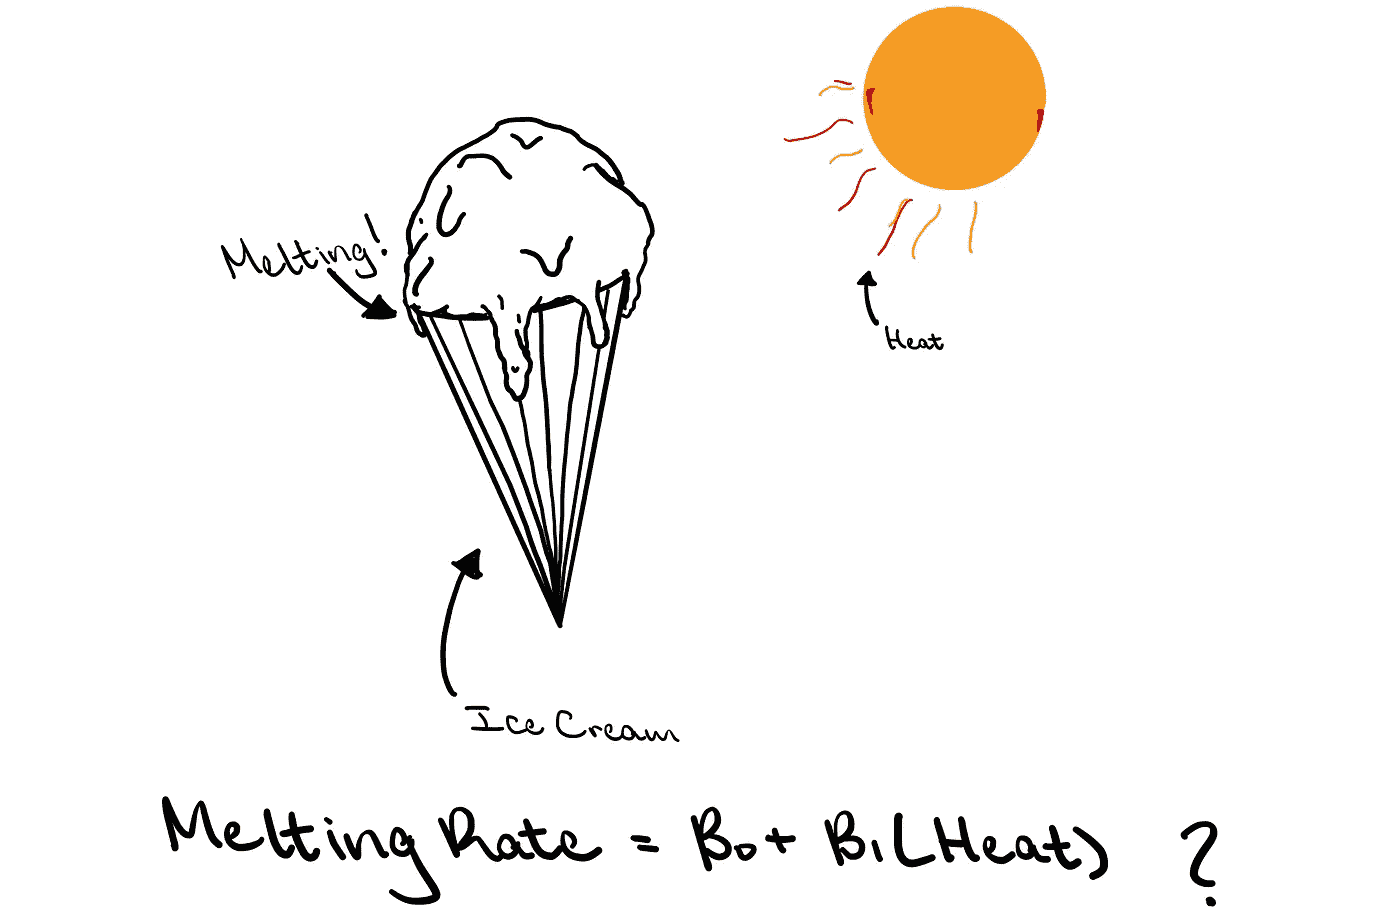 Melting!
Heat
Ice Cream
Melting Rate = B₀ + B₁(Heat) ?